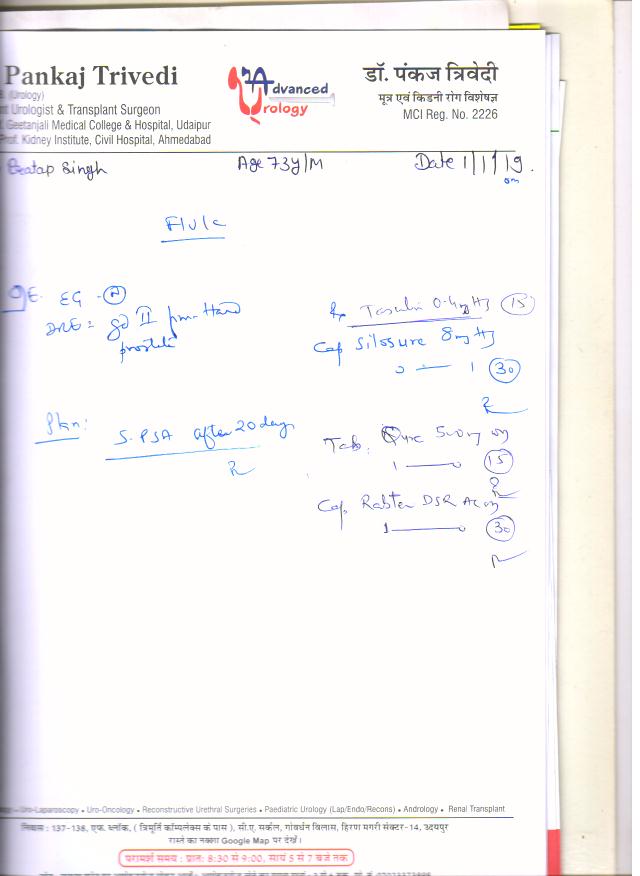 Pankaj Trivedi
(Urology)
Urologist & Transplant Surgeon
Geetanjali Medical College & Hospital, Udaipur
Prof. Kidney Institute, Civil Hospital, Ahmedabad
Advanced
Urology
डॉ. पंकज त्रिवेदी
मूत्र एवं किडनी रोग विशेषज्ञ
MCI Reg. No. 2226
Pratap Singh
Age 73y/M
Date 1/1/19.
EG - N
DRE = gd II
prostate
Plan:
S. PSA after 20 days
0.4mg
15
Cap Silosure 8mg
0 — 1 30
Tab. 500mg
1 — 0 15
Cap. DSR
1 — 0 30
Uro-Laparoscopy • Uro-Oncology • Reconstructive Urethral Surgeries • Paediatric Urology (Lap/Endo/Recons) • Andrology • Renal Transplant
निवास : 137-138, एफ. ब्लॉक, ( त्रिमूर्ति कॉम्पलेक्स के पास ), सी.ए. सर्कल, गोवर्धन विलास, हिरण मगरी सेक्टर-14, उदयपुर
रास्ते का नक्शा Google Map पर देखें।
परामर्श समय : प्रातः 8:30 से 9:00, सायं 5 से 7 बजे तक